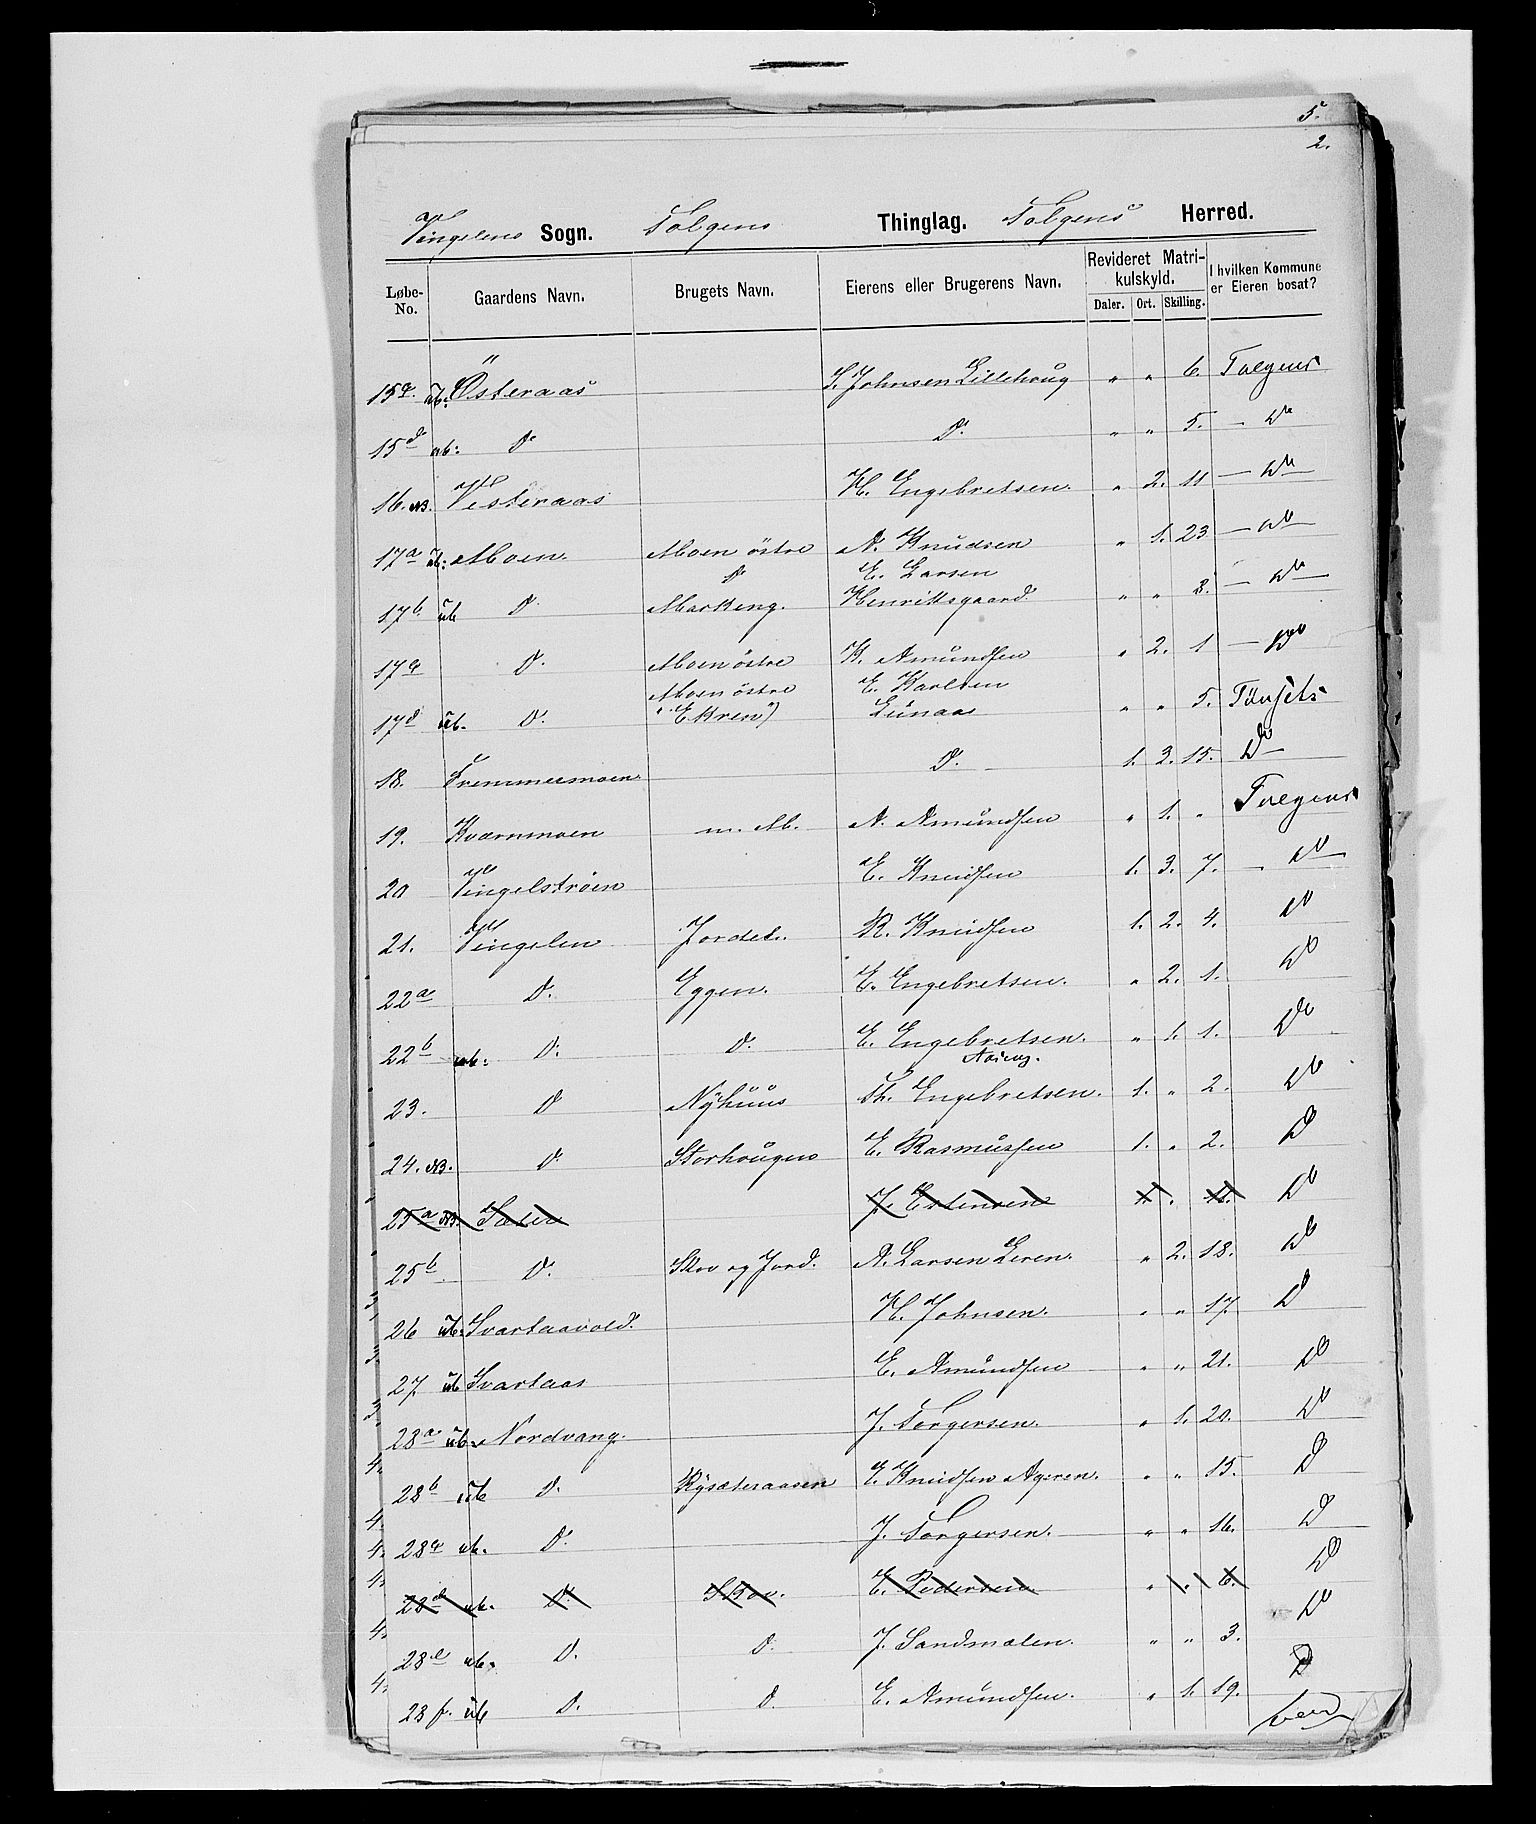 5.
2.
Vingelens Sogn. Tolgens Thinglag. Tolgens Herred.
Løbe-No. Gaardens Navn. Brugets Navn. Eierens eller Brugerens Navn. Revideret Matrikulskyld. I hvilken Kommune er Eieren bosat?
Daler. Ort. Skilling.
15c. ub. Østeraas S. Johnsen Lillehoug " " 6. Tolgens
15d ub: Do Do. " " 5. — Do
16. NB. Vesteraas H. Engebretsen. " 2. 11 — Do —
17a ub: Moen. Moen östre N. Knudsen " 1. 23 — Do —
17b ub Do. Do Markeng. E. Larsen Henriksgaard. " " 8. — Do —
17c Do. Moen östre K. Amundsen " 2. 1 — Do
17d ub. Do. Moen östre "Ekren") E. Karlsen Lunaas " " 5. Tönsets
18. Fremmermoen. Do. 1. 3. 15. Do —
19. Kværnmoen m. M. A. Amundsen " 1. " Tolgens
20 Vingelstrøen E. Knudsen 1. 3. 7. — Do —
21. Vingelen Jordet. R. Knudsen 1. 2. 4. Do
22a Do. Eggen. E. Engebretsen. " 2. 1. Do
22b ub: Do. Do. E. Engebretsen. " 1. 1. Do
23. Do Nÿhuus Th. Engebretsen. 1. " 2. Do
24. NB. Do. Storhougen E. Rasmussen 1. " 2. Do
25a NB. Sæter J. Estensen Do
25b Do. Skov og Jord. A. Larsen Leren. " 2. 18. Do
26 ub: Svartaavold. H. Johnsen. " " 17. Do
27. ub Svartaas E. Amundsen " " 21. Do
28a ub. Nordvang. J. Torgersen. " 1. 20. Do
28b ub Do. Rÿsæteraasen E. Knudsen Ageren. " " 15. Do
28c ub. Do. J. Torgersen. " " 16. Do
28d ub. Do. Skov. E. Pedersen " " 6. Do
28e ub. Do. Do. J. Sandmælen. " " 3. Do
28f. ub Do. Do. E. Amundsen. " 1. 19. Do